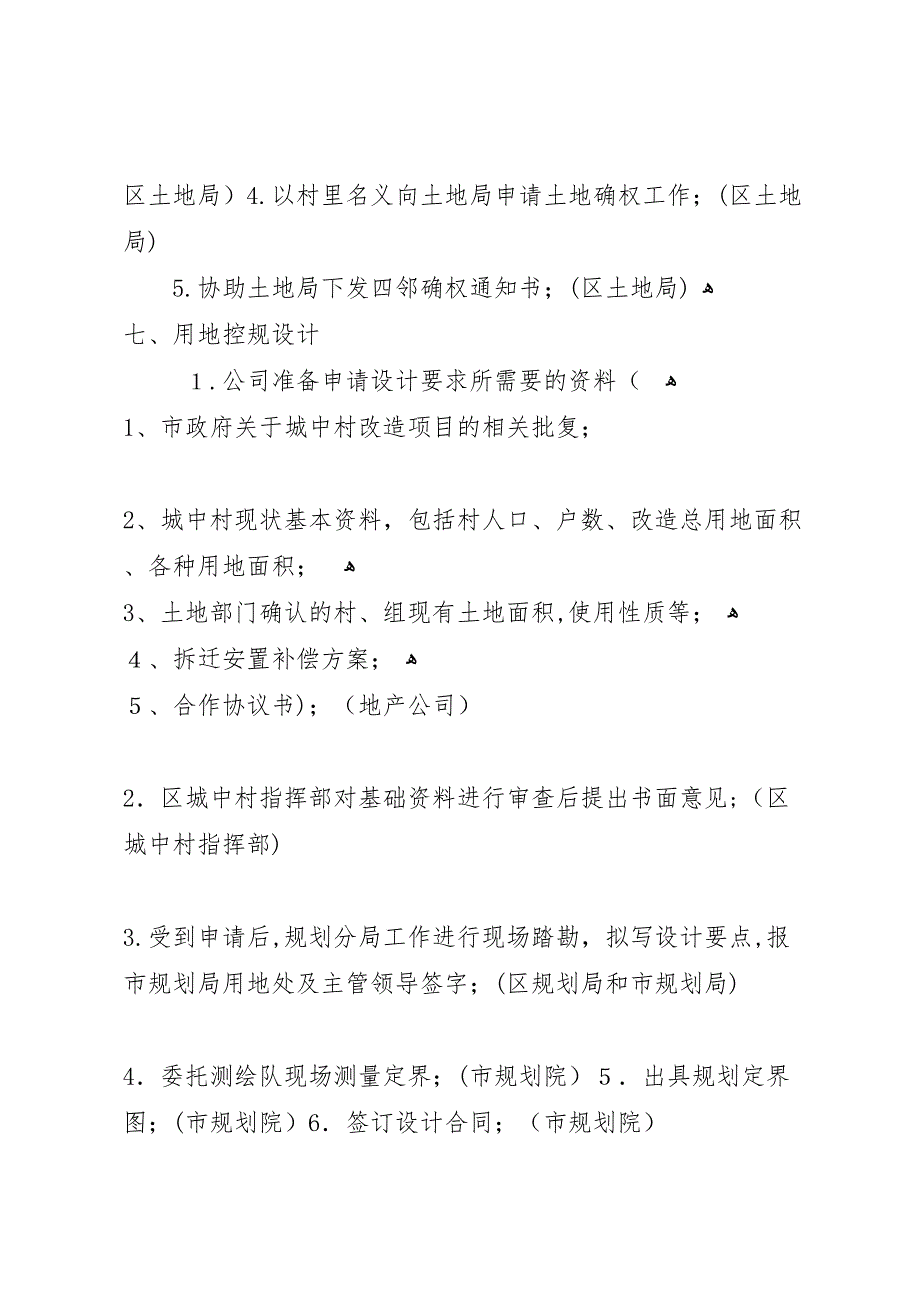 区土地局）4.以村里名义向土地局申请土地确权工作；(区土地
局)
5.协助土地局下发四邻确权通知书；(区土地局) ﻫ
七、用地控规设计
１.公司准备申请设计要求所需要的资料（ ﻫ
1、市政府关于城中村改造项目的相关批复；
2、城中村现状基本资料，包括村人口、户数、改造总用地面积
、各种用地面积； ﻫ
3、土地部门确认的村、组现有土地面积,使用性质等； ﻫ
４、拆迁安置补偿方案； ﻫ
５、合作协议书)；（地产公司）
2．区城中村指挥部对基础资料进行审查后提出书面意见;（区
城中村指挥部)
3.受到申请后,规划分局工作进行现场踏勘，拟写设计要点,报
市规划局用地处及主管领导签字；(区规划局和市规划局)
4．委托测绘队现场测量定界；(市规划院）５．出具规划定界
图；(市规划院）6．签订设计合同；（市规划院）